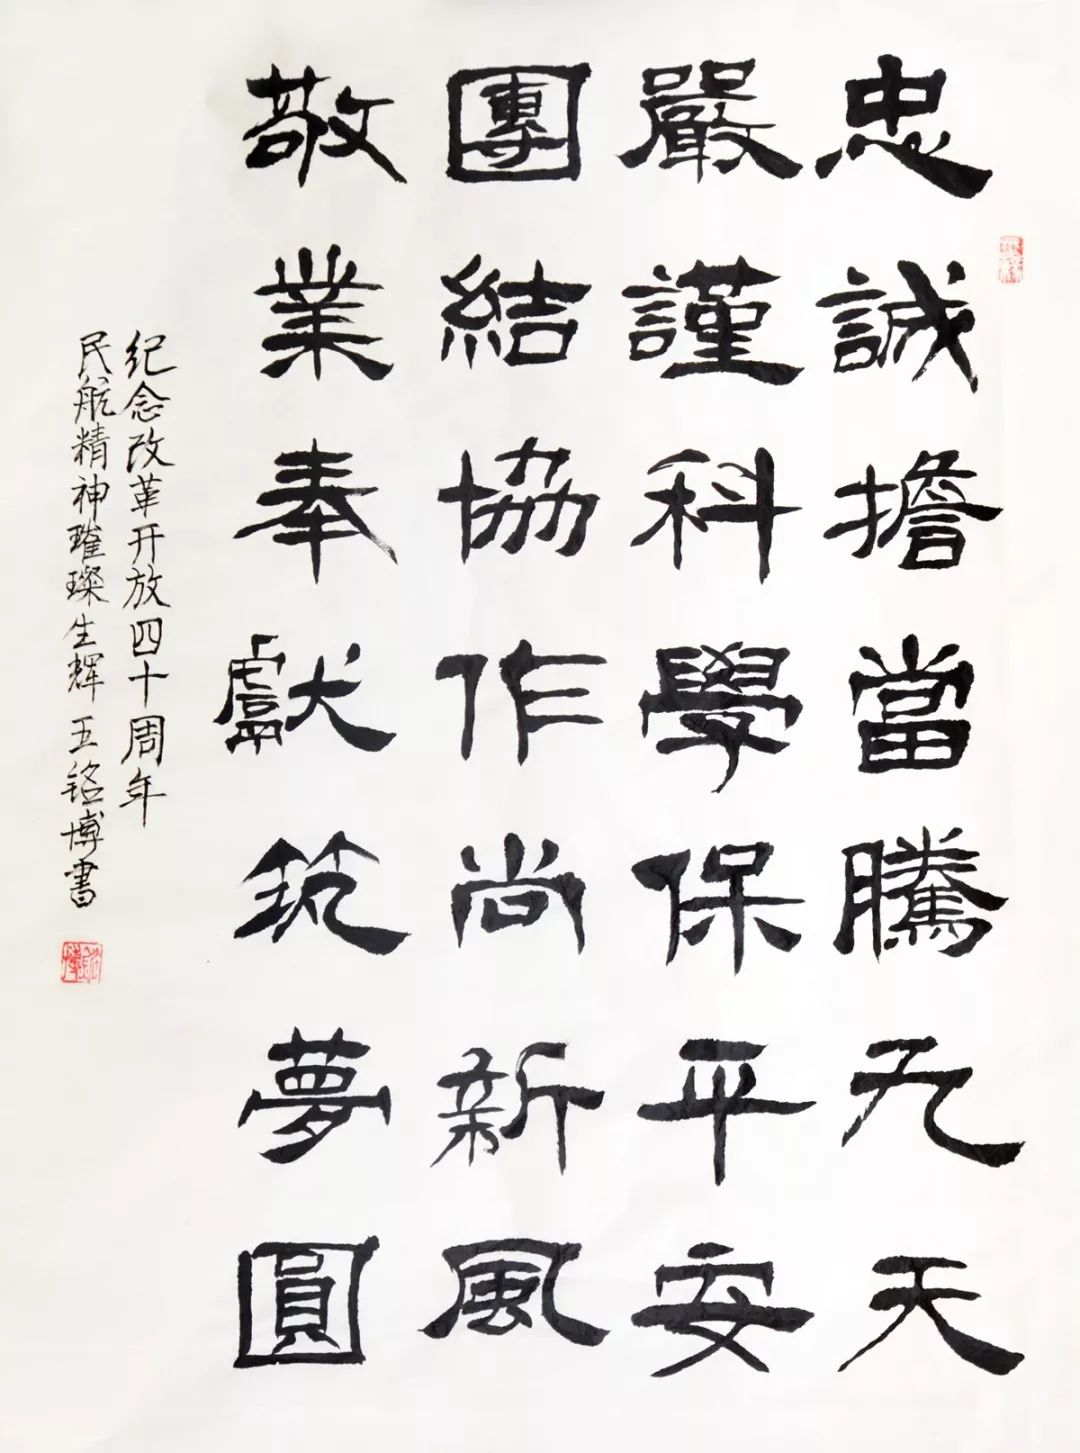 忠誠擔當騰九天
嚴謹科學保平安
團結協作尚新風
敬業奉獻筑夢圓
纪念改革开放四十周年
民航精神璀璨生辉 五铭博書